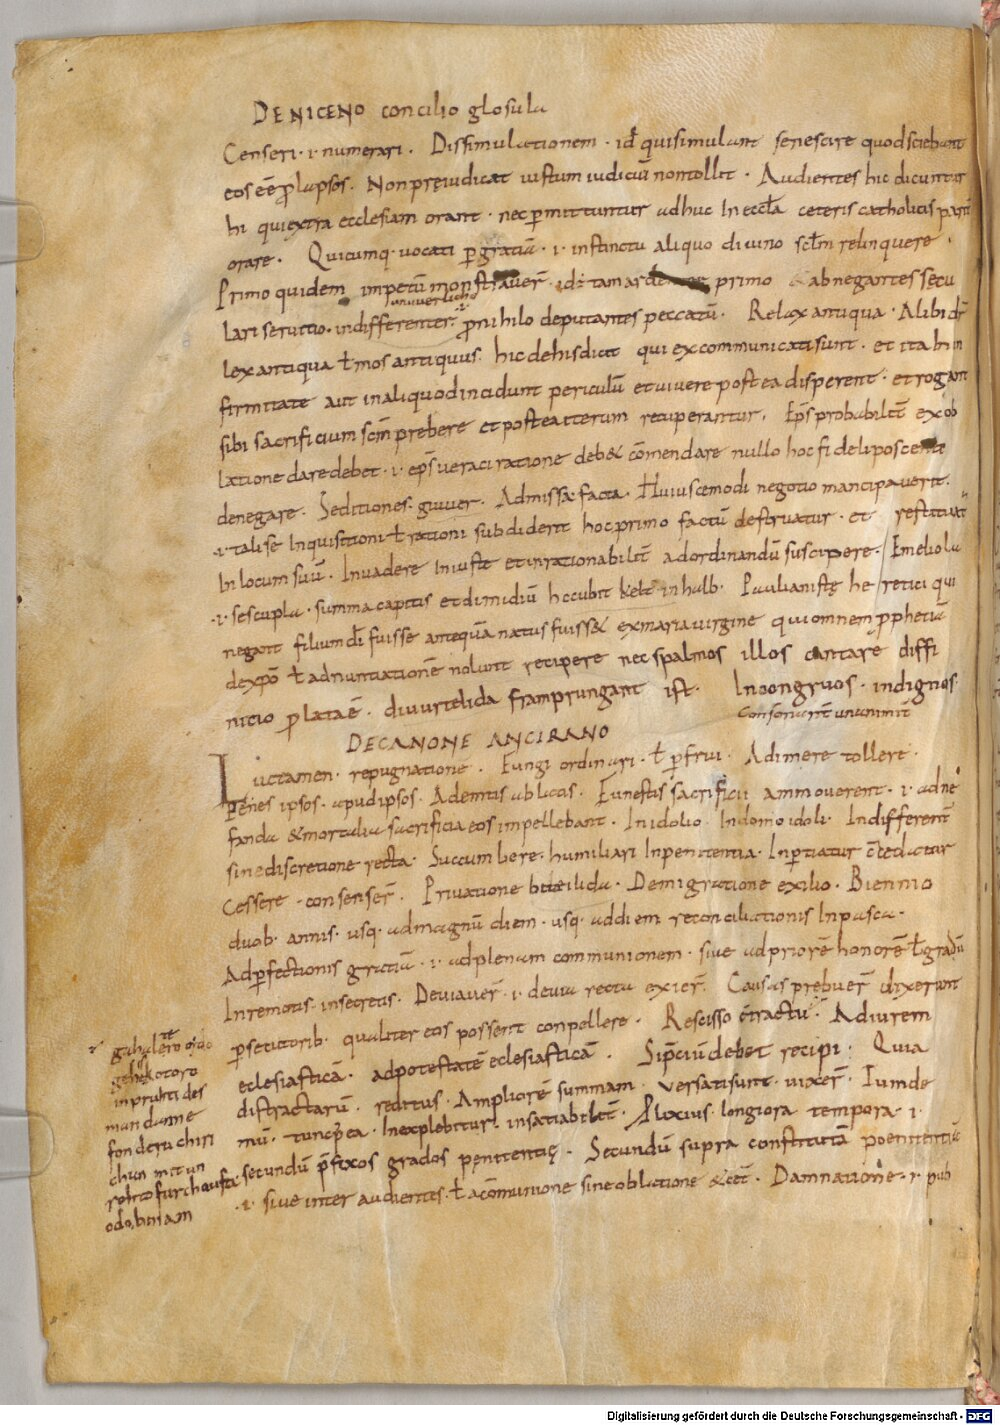 DE NICENO concilio glosula
Censeri · i · numerari . Dissimulationem · id̄ qui simulant se nescire quod sciebant
eos eē ꝓlapsos . Non pręiudicat iustum iudiciū non tollit . Audientes hic dicuntur
hi qui extra ecclesiam orant · nec ꝑmittuntur adhuc In eccl̄a ceteris catholicis
orare . Quicumq · uocati ꝑ gratiā · i · instinctu aliquo diuino sc̄lm relinquere .
Primo quidem impetū monstrauer̄ · primo abnegantes secu
unuuerlicho
lari seruitio · indifferenter · ꝓ nihilo deputantes peccatū . Relax antiqua . Alibi dr̄
lex antiqua ł mos antiquus . hic de his dicit qui excommunicati sunt · et ita
firmitate aut in aliquod incidunt periculū et uiuere post ea disperent · et rogant
sibi sacrificium sc̄m prebere et postea iterum recuperantur . Ep̄s probabilit̄ ex ob
latione dare debet · i · ep̄s ueraci ratione deb& cōmendare nullo hoc fideli poscente
denegare . Seditiones · giuuer . Admissa · facta . Huiuscemodi negotio mancipauerit .
· i · tali se Inquisitioni ł rationi subdiderit hoc primo factū destruatur · et restituat
In locum suū . Inuadere Iniuste et inrationabilit̄ ad ordinandū suscipere . Emeliola
· i · sescupla · summa capitis et dimidiū hocubit halb . Paulianistę heretici qui
negant filium dī fuisse antequā natus fuiss& ex maria uirgine qui omnem ꝓphetiā
de xp̄o ł adnuntiationē nolunt recipere nec spalmos illos cantare diffi
nicio ꝓlataē · diu urtelida framprungant ist . Incongruos · indignos
Consonarent unanimit̄
DE CANONE ANCIRANO
Luctamen · repugnatione . Fungi ordinari · ł ꝑfrui . Adimere tollere .
Penes ipsos · apud ipsos . Ademtis ablatis . Funestis sacrificii ammouerent · i · ad ne
fanda & mortalia sacrificia eos impellebant . In idolio · In domo idoli . Indifferent̄
sine discretione recta . Succumbere · humiliari In penitentia .
Cessere · consenser̄ . Priuatione Demigratione exilio . Biennio
duob · annis · usq · ad magnū diem · usq · ad diem reconciliationis In pasca .
Ad ꝑfectionis gratiā · i · ad plenam communionem · siue ad priorē honorē ł gradū
In remotis · in secretis . Deuiauer̄ · i · deuia recta exier̄ . Causas prębuer̄ dixerunt
ꝑsecutorib · qualiter eos possent conpellere . Rescisso ctractu . Ad iurem
eclesiasticā · ad potestatē eclesiasticā . debet recipi . Quia
distractarū · reditus . Ampliorē summam . Versati sunt · uixer̄ . Iamde
mū · tunc Inexplebitur · insatiabilit̄ . Ꝓlixius · longiora tempora · i ·
secundū p̄fixos grados pęnitentię . Secundū supra constitutā poenitentiā
· i · siue inter audientes · ł a cōmunione sine oblatione &cet̄ . Damnatione · i · pub
gihalero
gehekotoro
in pruhti des
man danne
fon deru chiri
chun mit un
rehto furchoufta
odo, biniam
Digitalisierung gefördert durch die Deutsche Forschungsgemeinschaft - DFG